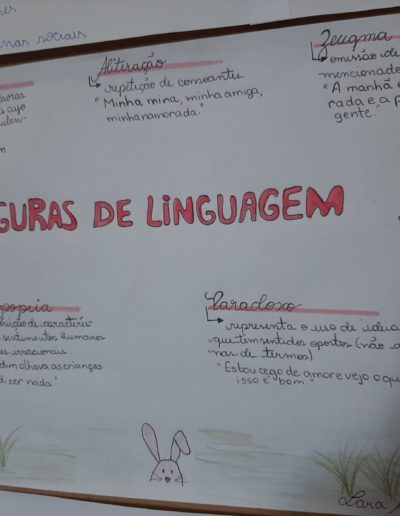 nas sociais
Aliteração
repetição de consoante
"Minha mina, minha amiga,
minha namorada."
Zeugma
omissão de
mencionado
"A manhã
rada e a p
gente."
GURAS DE LINGUAGEM
popeia
sentimentos humanos
irracionais
dim olhava as crianças
dizer nada"
Paradoxo
representa o uso de ideia
que tem sentidos opostos (não a
nas de termos)
"Estou cego de amor e vejo o qu
isso é bom."
Lara